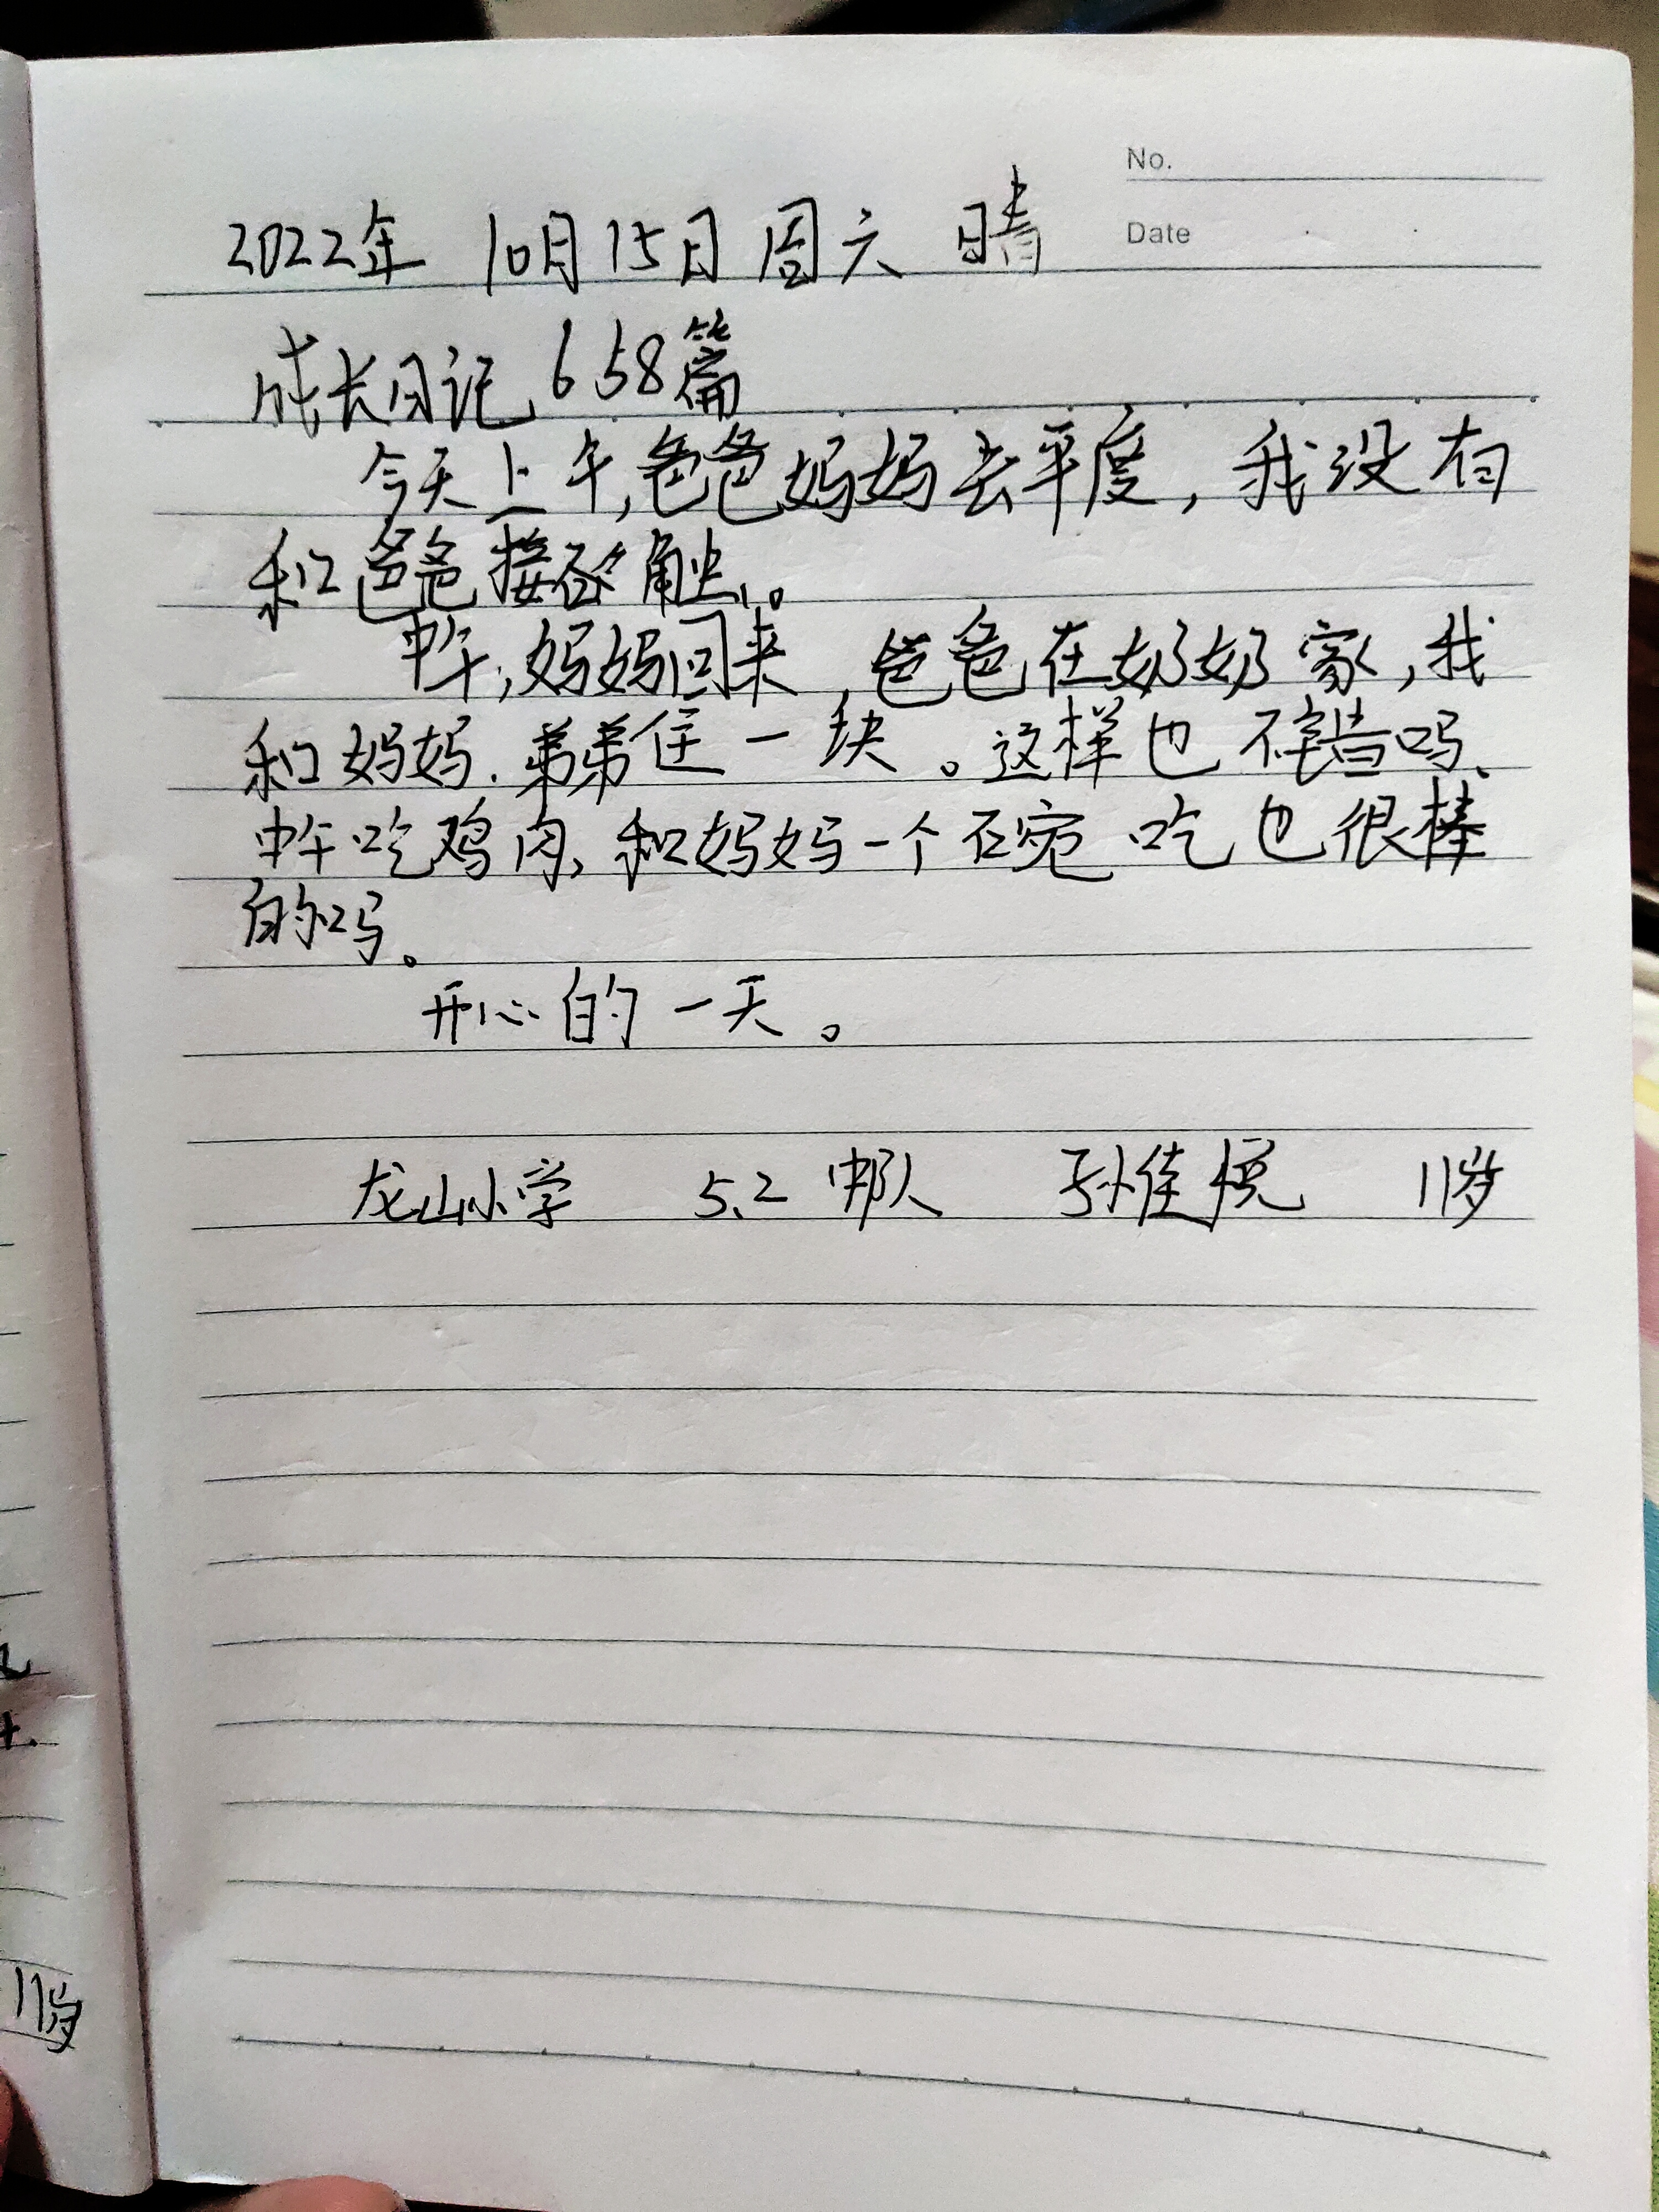 No.
Date
2022年 10月15日 周六 晴
成长日记 658篇
今天上午,爸爸妈妈去平度,我没有
和爸爸接触。
中午,妈妈回来,爸爸在奶奶家,我
和妈妈.弟弟住一块。这样也不错吗、
中午吃鸡肉,和妈妈一个碗吃也很棒
的吗。
开心的一天。
龙山小学 5.2中队 孙佳悦 11岁
11岁